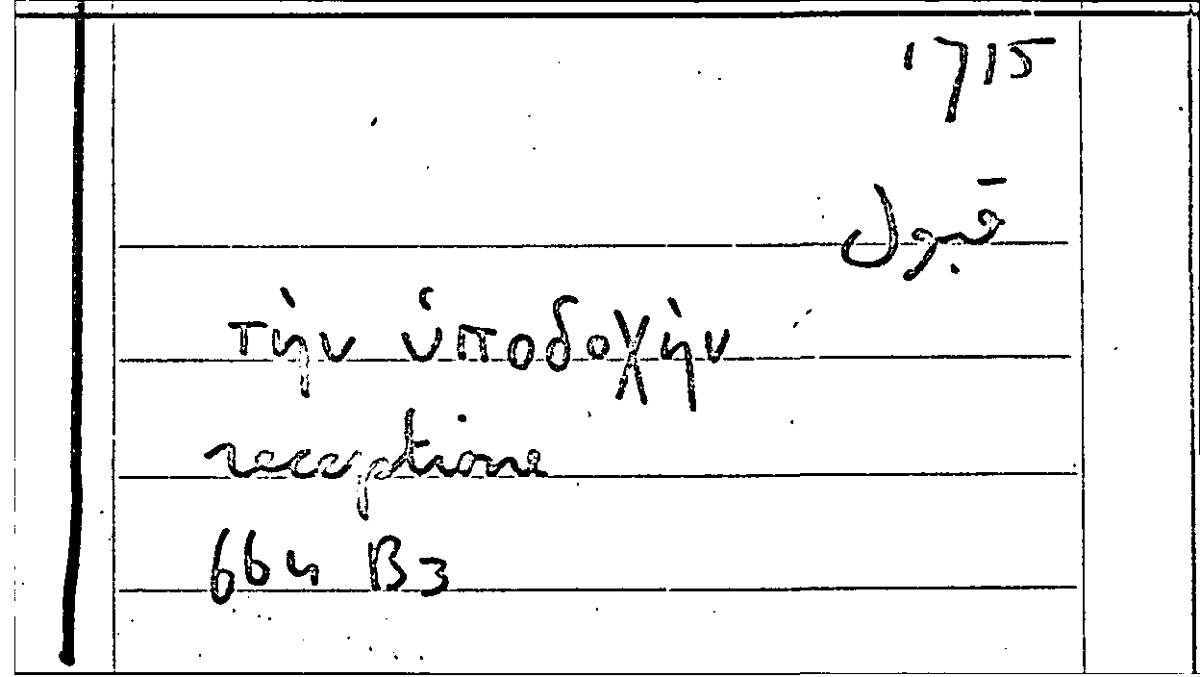 1715
τὴν ὑποδοχὴν
receptione
664 B3